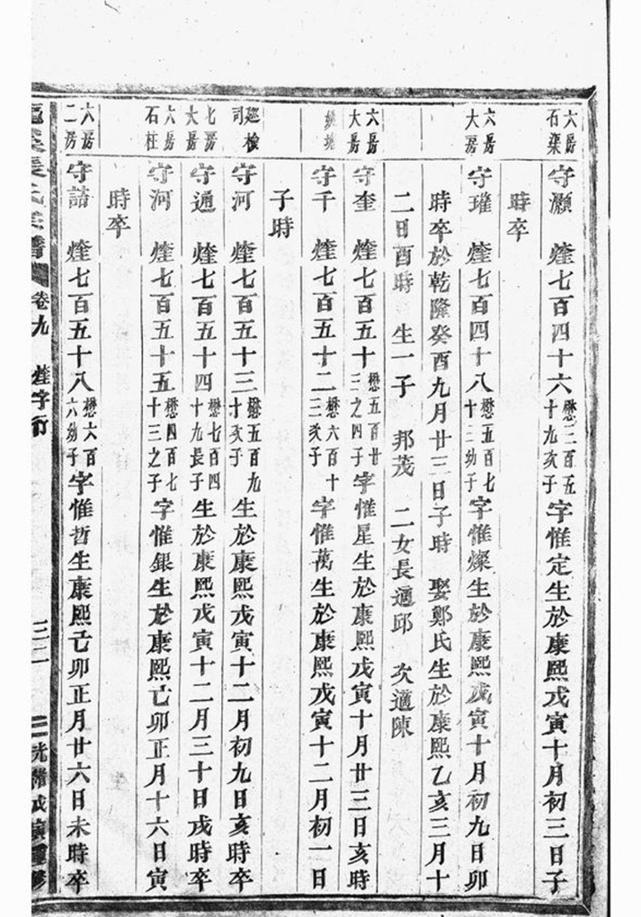 六房石渠 守灝 煃七百四十六 懋三百五十九次子 字惟定生於康熙戊寅十月初三日子
時卒
六房大房 守瓘 煃七百四十八 懋五百七十三幼子 字惟燦生於康熙戊寅十月初九日卯
時卒於乾隆癸酉九月廿三日子時 娶鄭氏生於康熙乙亥三月十
二日酉時 生一子 邦茂 二女長適邱 次適陳
六房大房 守奎 煃七百五十 懋五百廿三之四子 字惟星生於康熙戊寅十月廿三日亥時
守千 煃七百五十二 懋六百十三次子 字惟萬生於康熙戊寅十二月初一日
子時
巡檢司 守河 煃七百五十三 懋五百九十次子 生於康熙戊寅十二月初九日亥時卒
七房大房 守通 煃七百五十四 懋七百四十九長子 生於康熙戊寅十二月三十日戌時卒
六房石柱 守河 煃七百五十五 懋四百七十三之子 字惟銀生於康熙己卯正月十六日寅
時卒
六房二房 守詰 煃七百五十八 懋六百六幼子 字惟哲生康熙己卯正月廿六日未時卒
氏宗譜 卷九 煃字行 三二